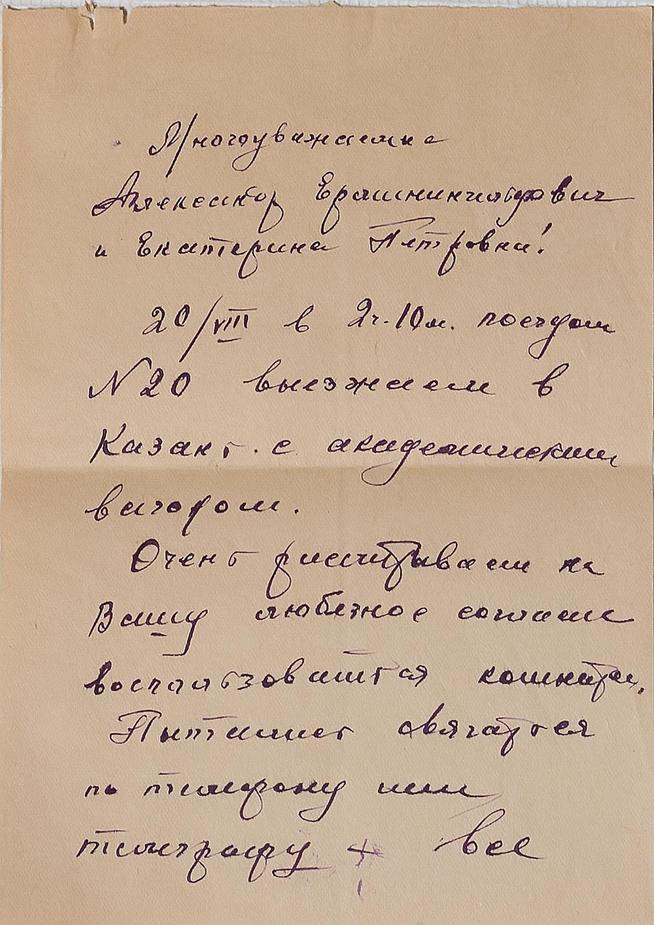 Многоуважаемые
Александр Ерминингельдович
и Екатерина Петровна!
20/VIII в 2ч.10м. поездом
№20 выезжаем в
Казань с академическим
вагоном.
Очень рассчитываем на
Вашу любезное согласие
воспользоваться комнатой.
Пытались связаться
по телефону или
телеграфу + все